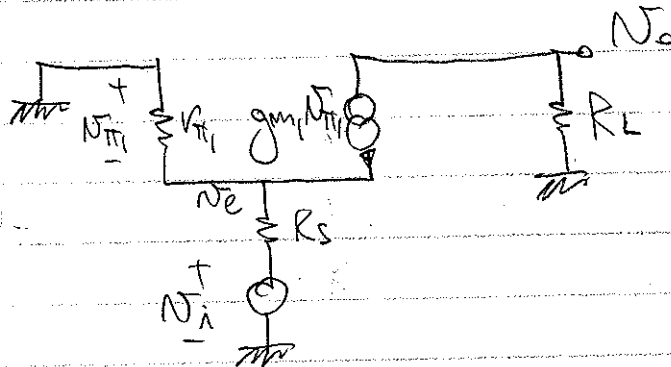 Vo
+
Vπ1
-
rπ1
gm1Vπ1
RL
Ve
Rs
+
Vi
-